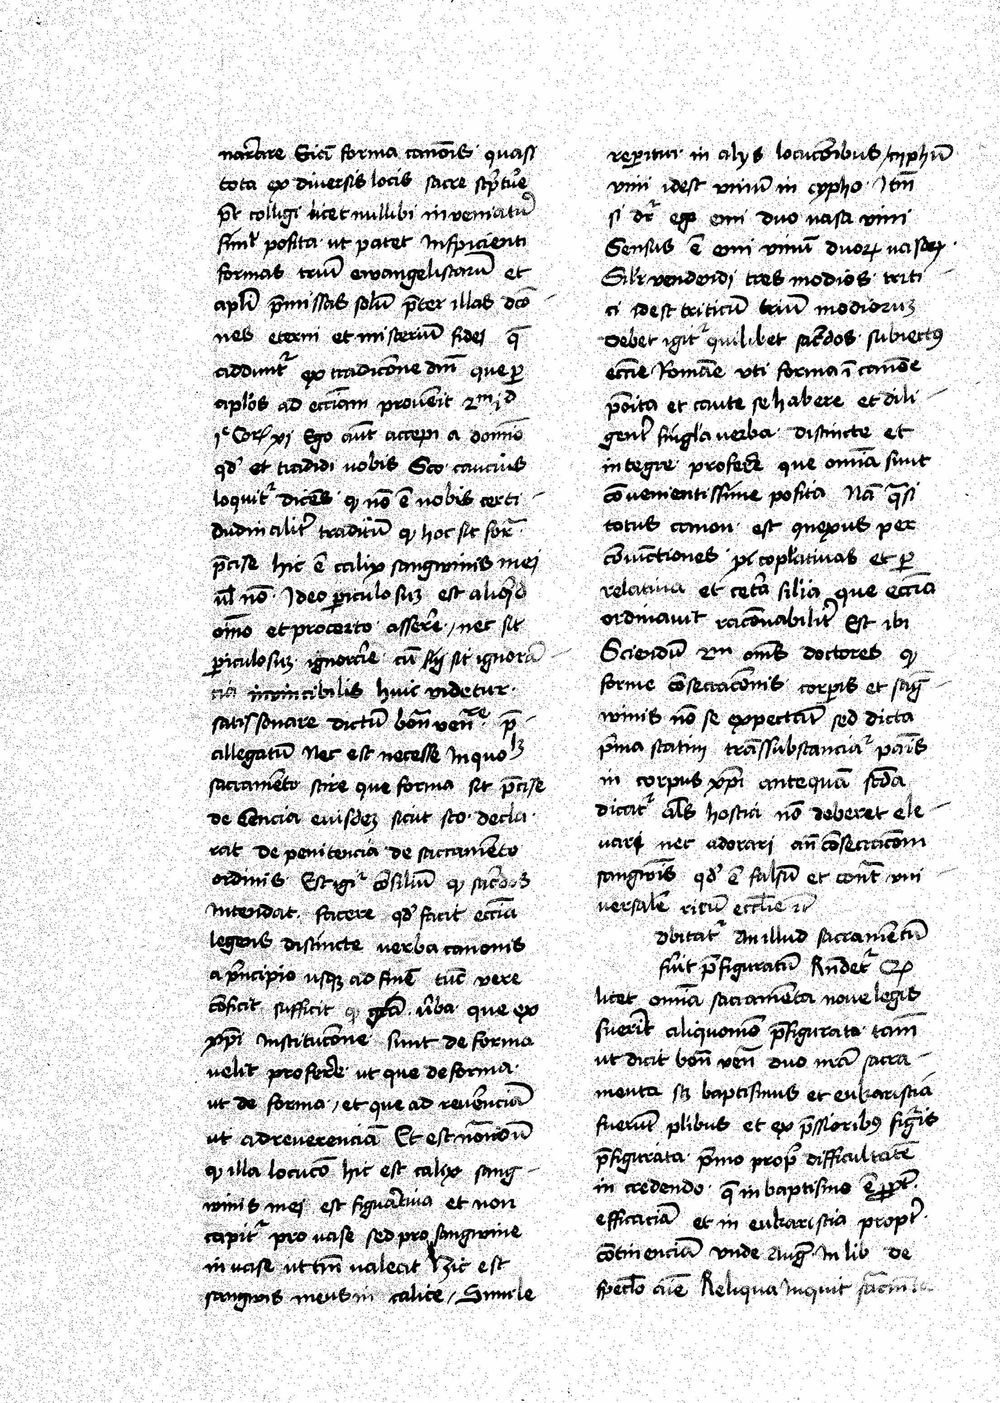 narrare Sicut forma canonis quasi
tota ex diversis locis sacre scripture
pt colligi licet nullibi inveniatur
simlr posita ut patet Inspicienti
formas trium ewangelistarum et
apli pmissas solum preter illas dco
nes eterni et misterium fidei que
addunt ex tradicone dni que per
aplos ad ecciam provenit
Cor xi Ego aut accepi a domino
qd et tradidi vobis Sco
loquitr dicens q no e nobis certi
dudinaliter traditum q hoc sit for
pcise hic e calix sangwinis mei
vl no Ideo periculosuz est aliqd
omo et procerto asserere / nec sit
periculosuz ignorare cum sit ignoran
cia invincibilis huic videtur
satis sonare dictum bonaven
allegatum Nec est necesse In quolz
sacramento scire que forma sit pcise
de essencia eiusdez sicut sco decla
rat de penitencia de sacramento
ordinis Est igr consilium q sacerdos
Intendat facere qd facit eccia
legens distincte verba canonis
a principio usqz ad finem tunc vere
conficit sufficit q verba que ex
xpi Institucone sunt de forma
velit proferre ut que de forma
ut de forma / et que ad reverenciam
ut ad reverenciam Et est notandum
q illa locuco hic est calix sang
winis mei est figurativa et non
capitr pro vase sed pro sangwine
in vase ut tm valeat hic est
sangwis meus in calice / Simile
reperitur in alys locucoibus / cyphum
vini idest vinum in cypho Item
si dr ego emi duo vasa vini
Sensus e emi vinum duorum vasorum
Silr vendendi tres modios triti
ci idest triticum trium modioruz
Debet igitr quilibet sacerdos subiectus
eccie Romane uti forma in canone
posita et caute se habere et dili
genter singula verba distincte et
integre proferre que omnia sunt
convenientissime posita Nam quasi
totus canon est connexus per
coniunctiones copulativas et per
relativa et cetera similia que eccia
ordinavit racionabiliter Est ibi
Sciendum omnes doctores q
forme consecraconis corporis et sang
winis no se expectant sed dicta
prima statim transsubstanciatr panis
in corpus xpi antequam scda
dicatr als hostia no deberet ele
vari nec adorari an consecracom
sangwinis qd e falsum et contra vni
versalem ritum ecclie
Dbitatr An illud sacramentum
fuit prefiguratum Rndetr Q
licet omnia sacramenta nove legis
fuerint aliquomodo prefigurata tamen
ut dicit bonaven duo nra sacra
menta scz baptismus et eukaristia
fuerunt pluribus et expressioribus figuris
prefigurata primo propter difficultatem
in credendo que in baptismo e propter
efficaciam et in eukaristia propter
continenciam vnde Aug In lib de
Reliqua Inquit